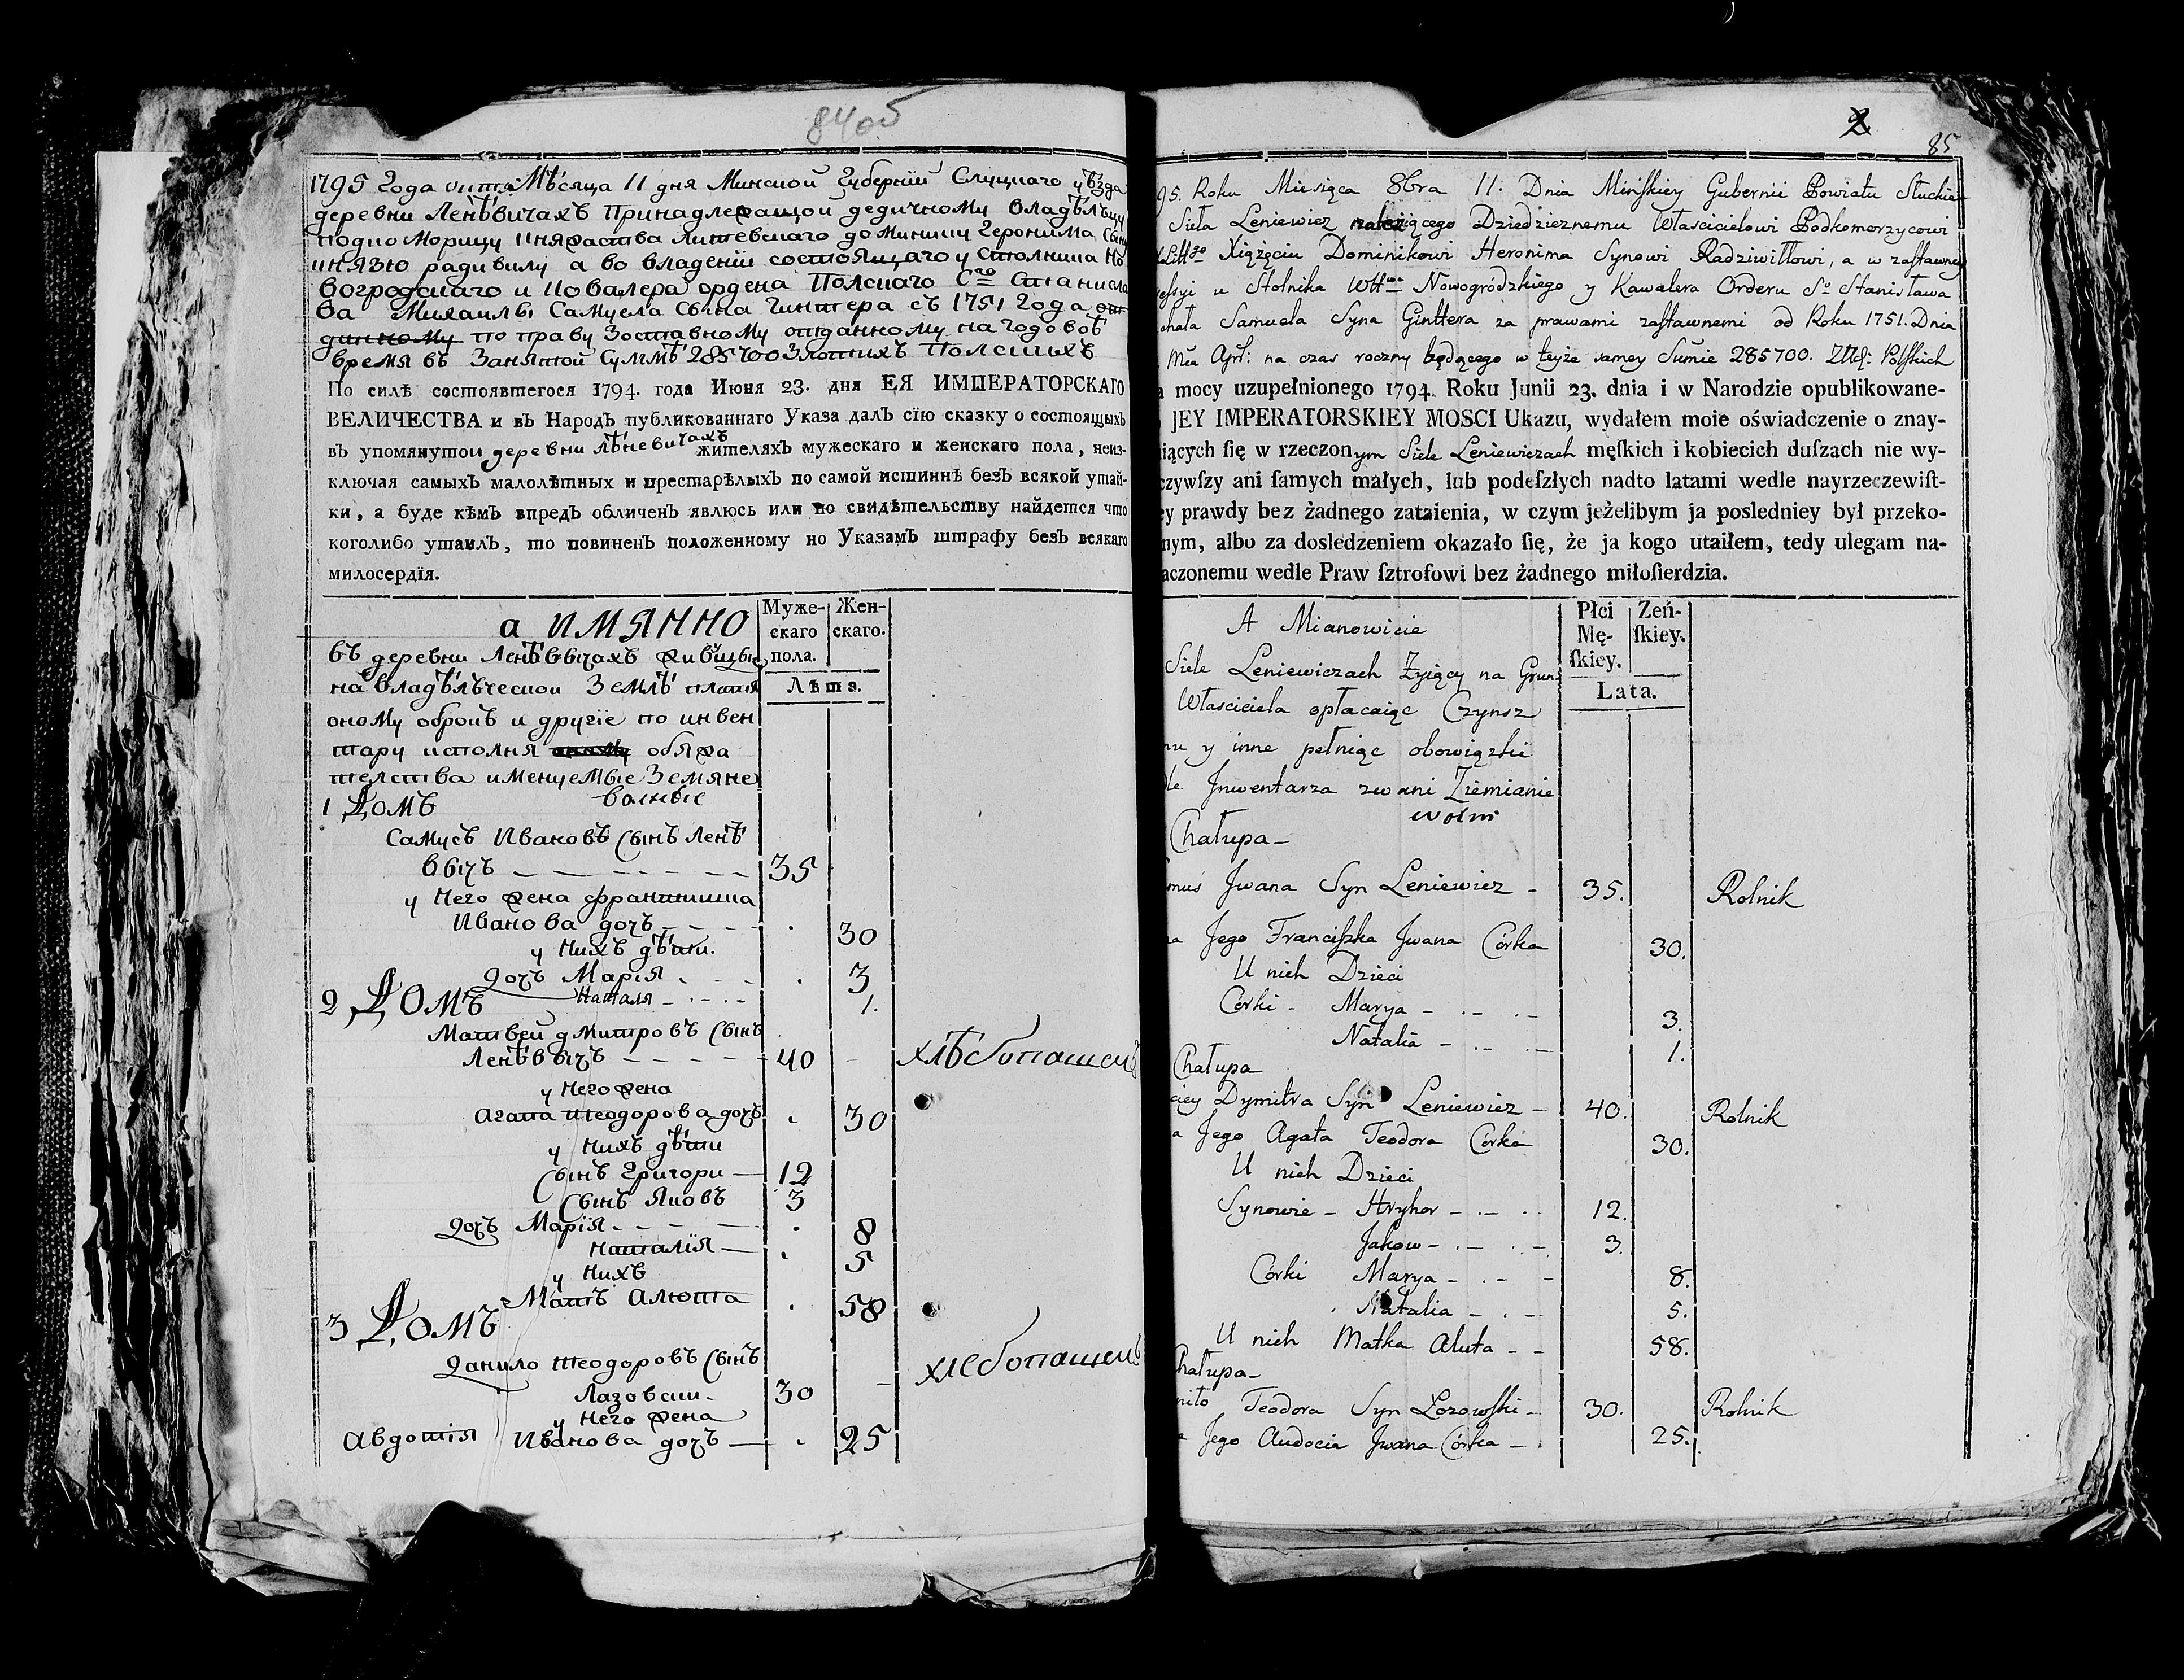 84об
1795 года октя Мѣсяца 11 дня Минской Губернїи Слуцкаго уѣзда
деревни Ленѣвичахъ Принадлежащой дедичному владѣлъцу
подко Морицу княжества литевскаго доминику Геронима Сын
князю радивилу а во владенїи состоящаго у столника Но
вогродскаго и Ковалера ордена Полскаго Сго Станисла
ва Михаилы Самуела Сына Гинтера съ 1751 года
по праву Зоставному отданному на годовоѣ
время въ Занятой Суммѣ 285700 Злотихъ Полскихъ
По силѣ состоявтегося 1794. года Июня 23. дня ЕЯ ИМПЕРАТОРСКАГО
ВЕЛИЧЕСТВА и въ Народъ публикованнаго Указа далъ сїю сказку о состоящыхъ
въ упомянутои деревни Лѣневичахъ жителяхъ мужескаго и женскаго пола, неиз-
ключая самыхъ малолѣтных и престарѣлыхъ по самой истиннѣ безъ всякой утай-
ки, а буде кѣмъ впредъ обличенъ явлюсь или по свидѣтельству найдется что
коголибо утаилъ, то повиненъ положенному по Указамъ штрафу безъ всякаго
милосердїя.
а ИМЯННО
Муже-
скаго
пола.
Жен-
скаго.
Лѣтъ.
въ деревни Ленѣввичахъ живущые
на владѣлъческой Землѣ платя
оному оброкъ и другїе по инвен
тару исполня обяжа
телства именуемые Земяне
волные
1 Домъ
Самусъ Ивановъ Сынъ Ленѣ
вычъ 35
у Него жена францишка
Иванова дочъ 30
у Нихъ дѣти.
Дочъ Марїя 3
Наталя 1.
2 Домъ
Матвей дмитровъ Сынъ
Ленѣввычъ 40 хлѣбопашец
у Него жена
Агапа теодорова дочъ 30
у Нихъ дѣти
Сынъ Григори 12
Сынъ Яковъ 3
Дочъ Марїя 8
Наталїя 5
у Нихъ
Матъ Алюта 58
3 Домъ
Данило теодоровъ Сынъ хлебопашец
Лазовски 30
у Него жена
Авдотїя Иванова дочъ 25
2
85
95. Roku Miesiąca 8bra 11. Dnia Mińskiey Gubernii Powiatu Słuckie
Sioła Leniewicz należącego Dziedzicznemu Właścicielowi Podkomorzycowi
Xiążęciu Dominikowi Heronima Synowi Radziwiłłowi, a w zastawney
u Stolnika Nowogródzkiego y Kawalera Orderu So Stanisława
chała Samuela Syna Ginttera za prawami zastawnemi od Roku 1751. Dnia
Mca Apl: na czas roczny będącego w teyże samey Sumie 285700. Złł: Polskich
a mocy uzupełnionego 1794. Roku Junii 23. dnia i w Narodzie opublikowane-
JEY IMPERATORSKIEY MOSCI Ukazu, wydałem moie oświadczenie o znay-
iących ſię w rzeczonym Siele Leniewiczach męſkich i kobiecich duſzach nie wy-
czywſzy ani ſamych małych, lub podeſzłych nadto latami wedle nayrzeczewiſt-
ey prawdy bez żadnego zataienia, w czym jeżelibym ja posledniey był przeko-
nym, albo za dosledzeniem okazało ſię, że ja kogo utaiłem, tedy ulegam na-
aczonemu wedle Praw ſztrofowi bez żadnego miłoſierdzia.
A Mianowicie
Płci
Mę-
ſkiey.
Zeń-
ſkiey.
Lata.
Siele Leniewiczach Żyiący na Grun
Właściciela opłacaiąc Czynsz
mu y inne pełniąc obowiązki
dle Jnwentarza zwani Ziemianie
wolni
Chałupa
muś Jwana Syn Leniewicz 35. Rolnik
na Jego Franciſzka Jwana Córka 30.
U nich Dzieci
Córki Marya 3.
Natalia 1.
Chałupa
ciey Dymitra Syn Leniewicz 40. Rolnik
a Jego Agata Teodora Córka 30.
U nich Dzieci
Synowie Hryhor 12.
Jakow 3.
Corki Marya 8.
Natalia 5.
U nich Matka Aluta 58.
Chałupa
niło Teodora Syn Łozowſki 30. Rolnik
a Jego Audocia Jwana Córka 25.